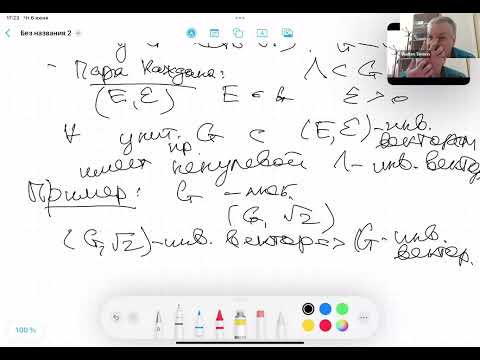 17:23 Чт 6 июня
Без названия 2
Пара Каждана: Λ < G
(E, ε) E ⊂ G ε > 0
∀ унит. пр. G с (E, ε)-инв. вектором
имеет ненулевой Λ-инв. вектор
Пример: G -
(G, √2)
(G, √2)-инв. вектор => G-инв. вектор.
100 %